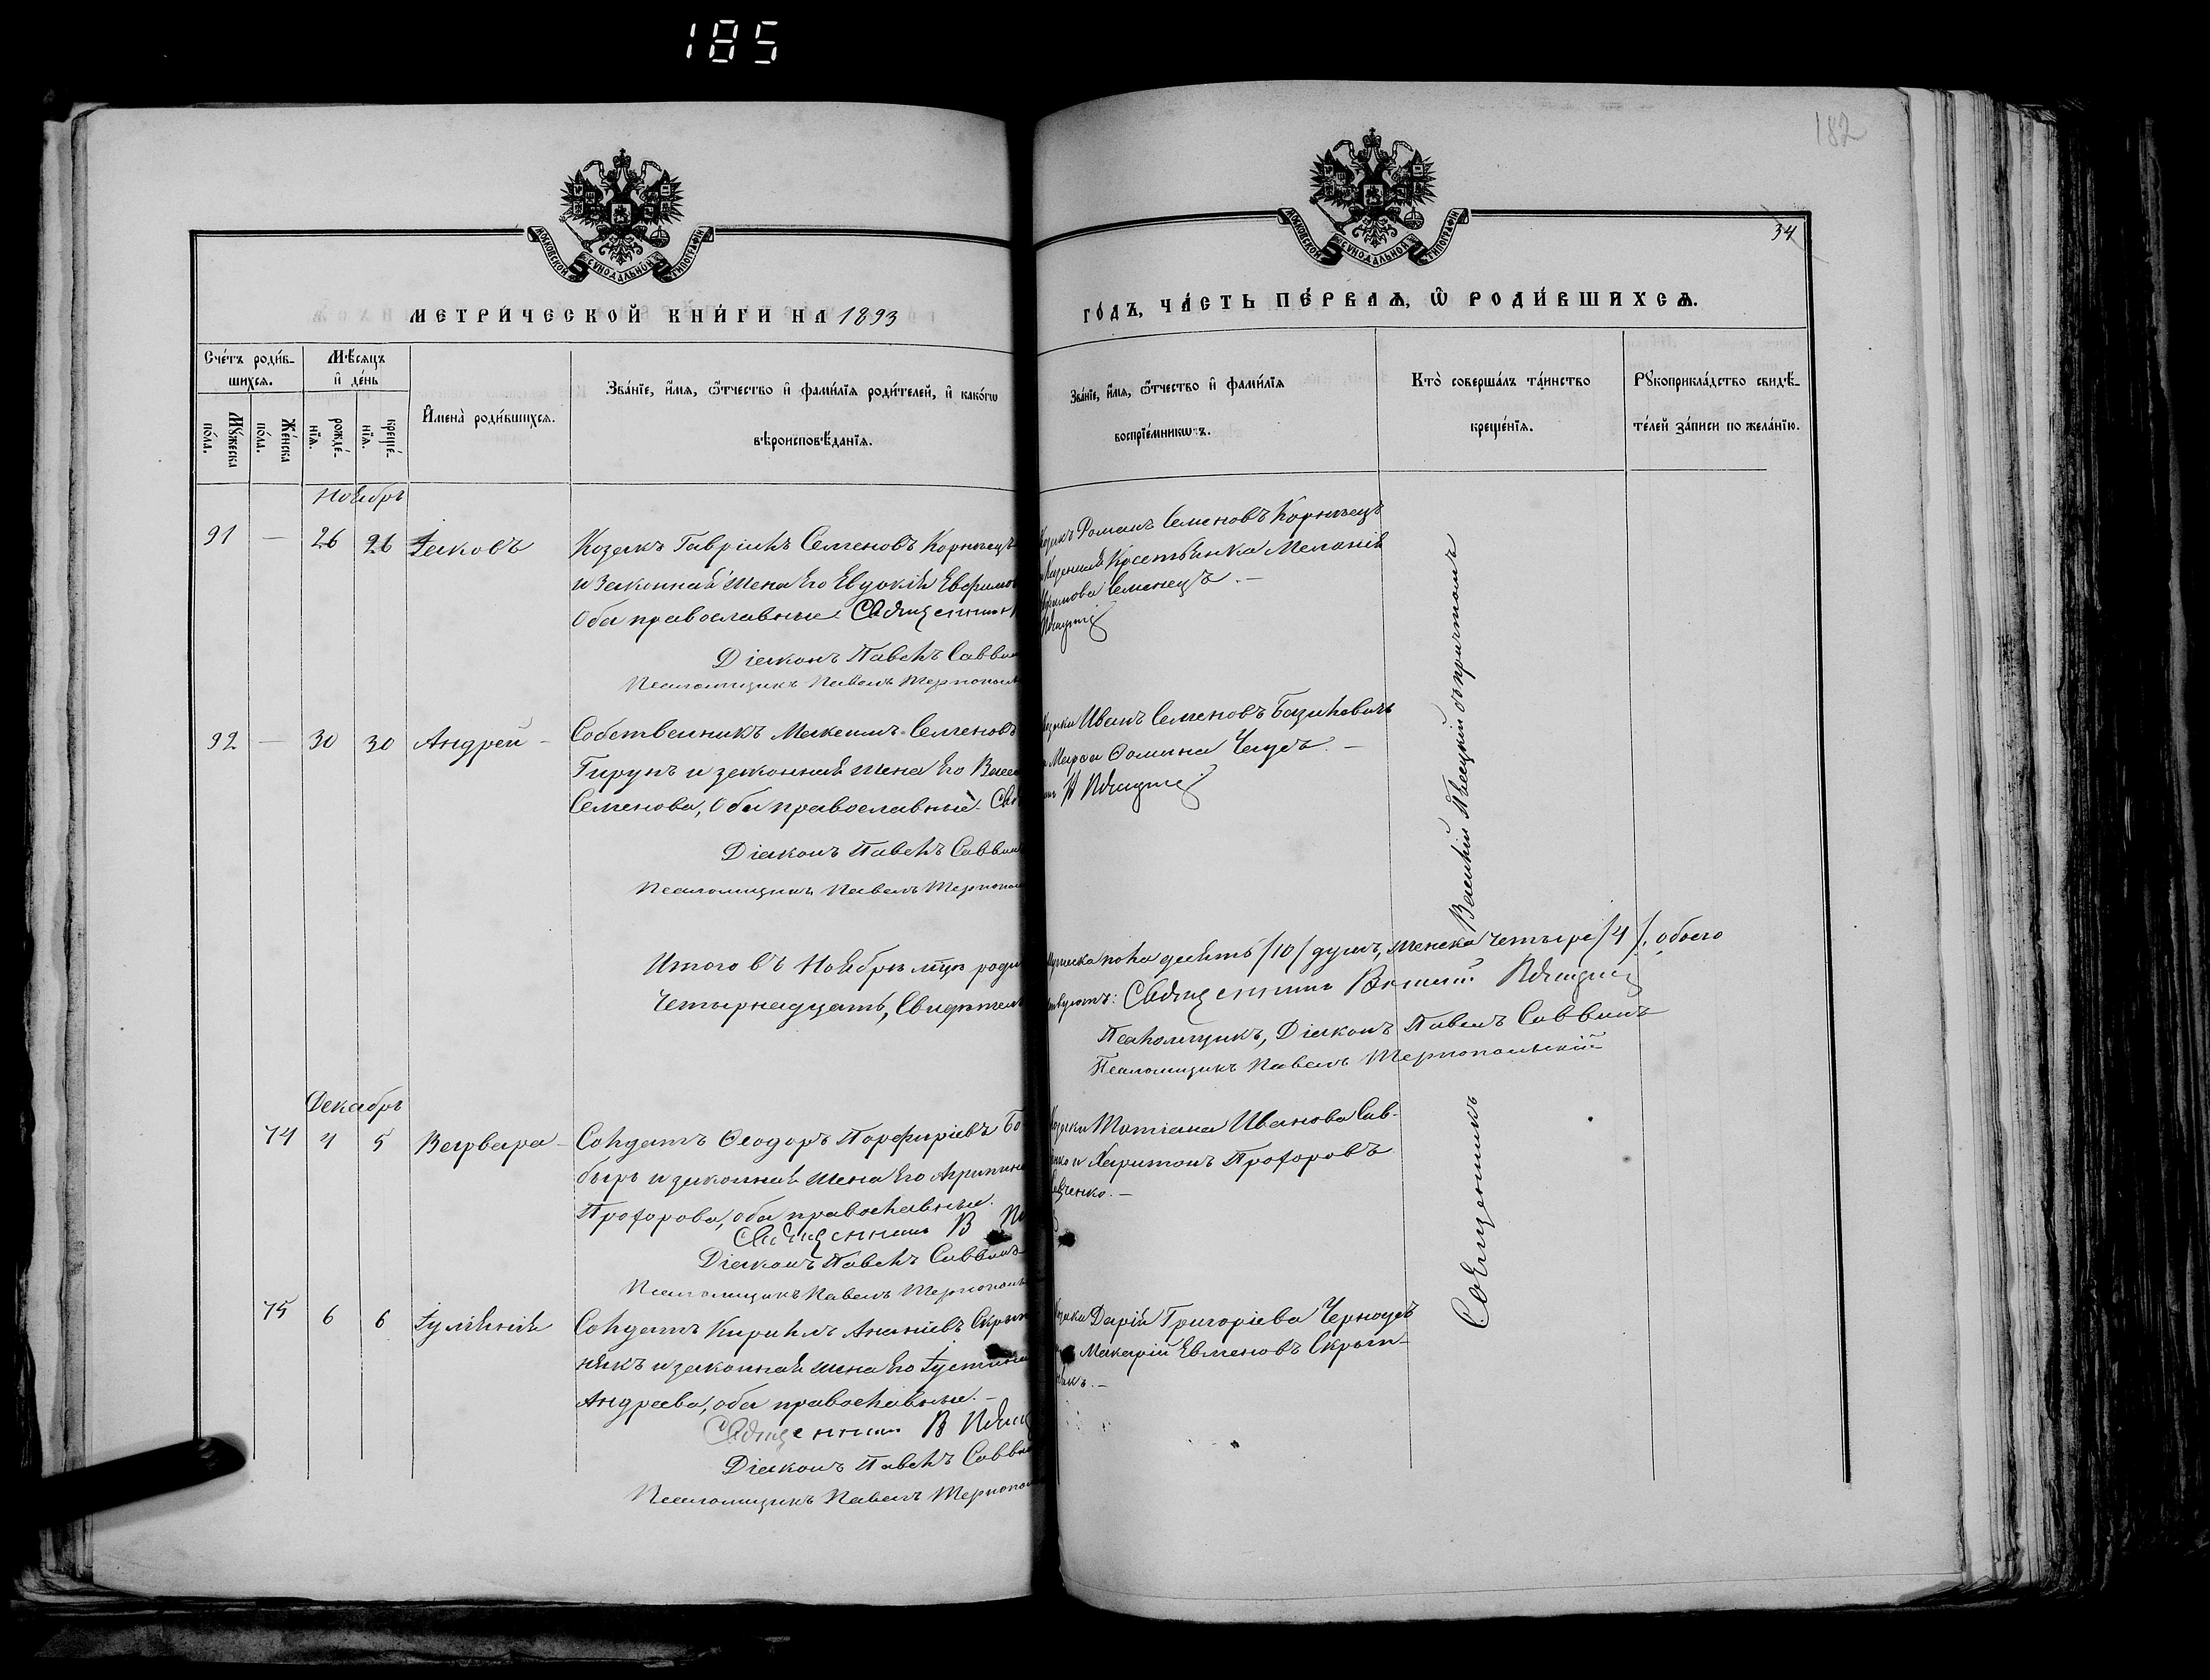 185
182
34
МЕТРИ́ЧЕСКОЙ КНИ́ГИ НА 1893
ГО́ДЪ, ЧА́СТЬ ПЕ́РВАЯ, Ѡ РОДИ́ВШИХСЯ.
Сче́тъ роди́в-
шихся.
Му́жеска
по́ла.
Же́нска
по́ла.
Мѣ́сяцъ
и҆ де́нь
рожде́-
нїя.
креще́-
нїя.
И҆мена̀ роди́вшихся.
Зва́нїе, и҆́мя, ѻ҆́тчество и҆ фами́лїя роди́телей, и҆ како́гѡ
вѣроисповѣ́данїя.
Зва́нїе, и҆́мя, ѻ҆́тчество и҆ фами́лїя
воспрїе́мникѡвъ.
Кто̀ соверша́лъ та́инство
креще́нїя.
Рукоприкла́дство свидѣ́-
телей за́писи по жела́нїю.
Ноябрь
91 — 26 26 Іаковъ
Козакъ Гавріилъ Семеновъ Корнѣецъ
и законная жена его Евдокія Ефимо
Оба православные. Священник
Діаконъ Павелъ Саввин
Псаломщикъ Павелъ Тернополь
Романъ Семеновъ Корнѣецъ
Крестьянка Меланія
Семенецъ. —
92 — 30 30 Андрей —
Собственникъ Максимъ Семеновъ
Гирунъ и законная жена его Васи
Семенова, Оба православные. Свя
Діаконъ Павелъ Саввин
Псаломщикъ Павелъ Тернопол
Иванъ Семеновъ Базилевичъ
Марѳа Ѳомина Чауст. —
Василій Пѣвецкій съ причтомъ
Итого въ Ноябрѣ мцѣ роди
Четырнадцать, Свидѣтель
мужеска пола десять /10/ душъ, женска четыре /4/, обоего
ствуютъ: Священникъ Василій
Псаломщикъ, Діаконъ Павелъ Саввинъ
Псаломщикъ Павелъ Тернопольскій
Декабрь
74 4 5 Варвара —
Солдатъ Ѳеодоръ Порфиріевъ Бо-
быръ и законная жена его Агрипина
Прохорова, оба православные.
Священникъ В
Діаконъ Павелъ Саввинъ
Псаломщикъ Павелъ Тернополь
Татіана Иванова Сав-
ченко и Харитонъ Прохоровъ
Савченко. —
75 6 6 Іуліанія
Солдатъ Кириллъ Ананіевъ Скрып
никъ и законная жена его Іустинія
Андреева, оба православные. —
Священникъ В
Діаконъ Павелъ Савви
Псаломщикъ Павелъ Тернопол
Дарія Григоріева Черноусъ
Макарій Евменовъ Скрып-
никъ. —
Священникъ